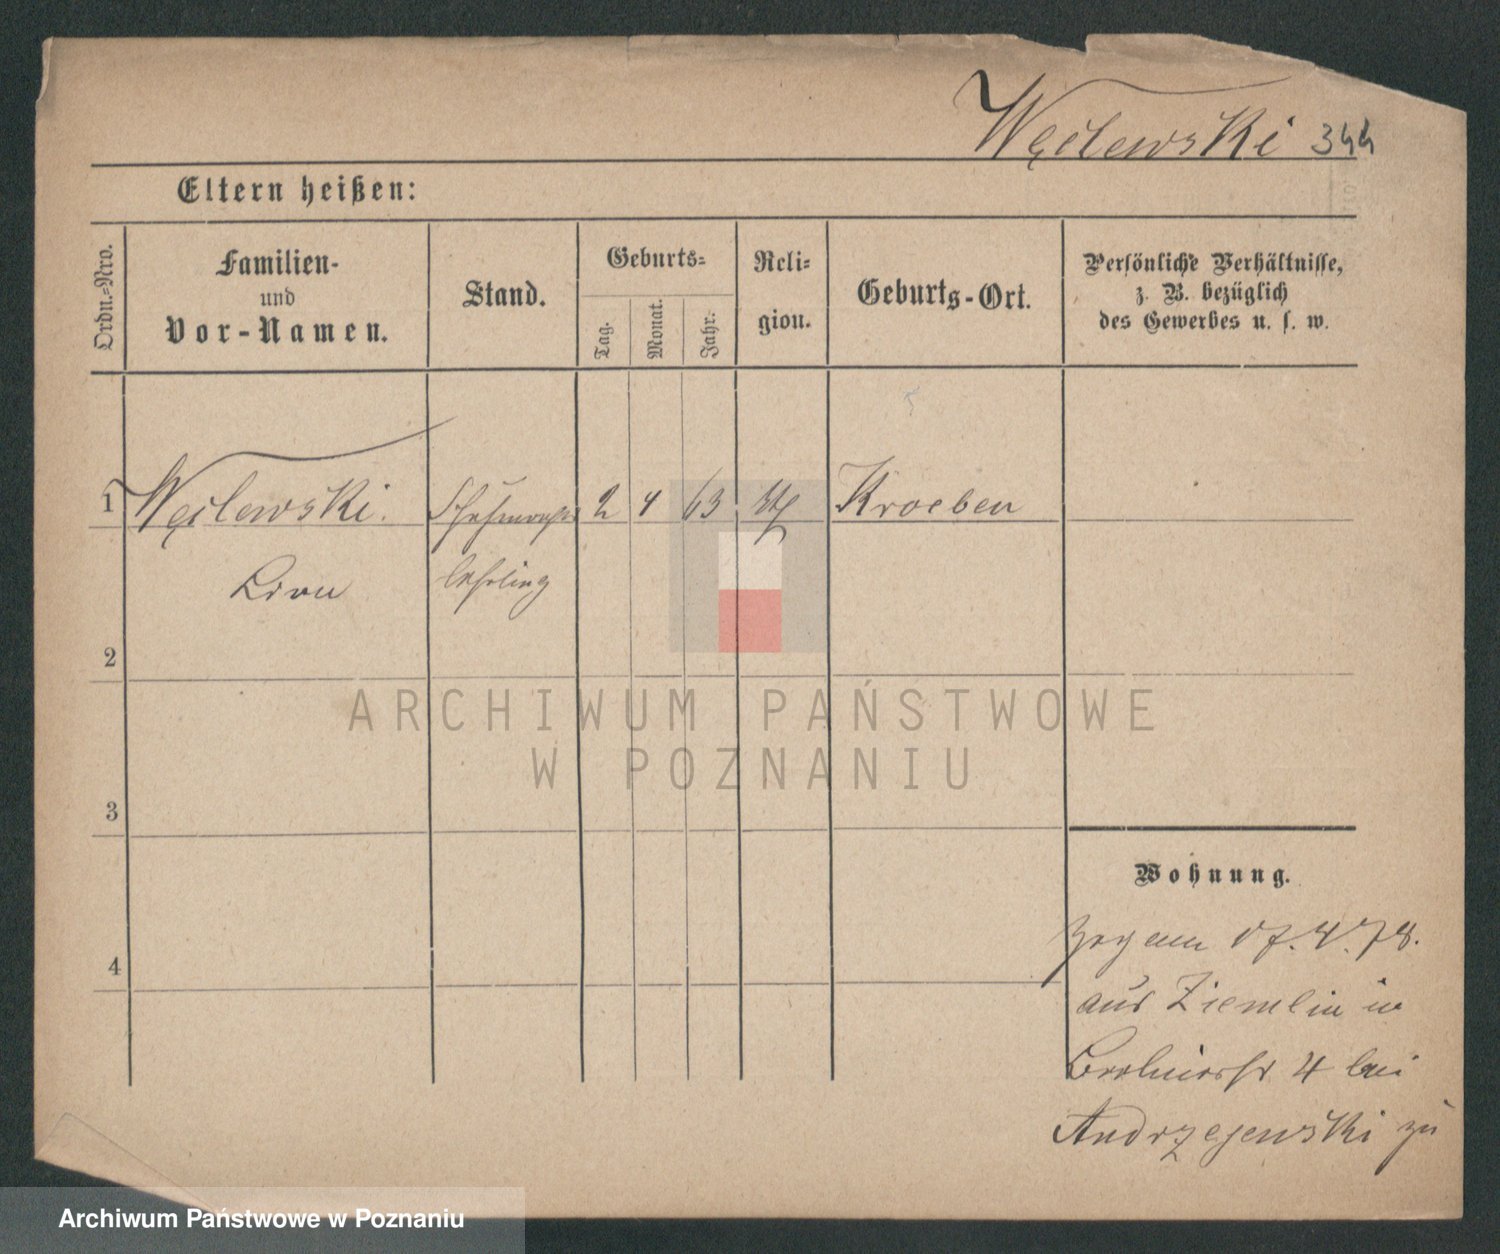 Węclewski 344
Eltern heißen:
Ordn.-Nro.
Familien-
und
Vor-Namen.
Stand.
Geburts-
Tag.
Monat.
Jahr.
Reli-
gion.
Geburts-Ort.
Persönliche Verhältnisse,
z. B. bezüglich
des Gewerbes u. s. w.
1 Węclewski. 2 4 63 Kroeben
lehrling
2
3
4
Wohnung.
Zog am 17.4.78.
aus Ziemlin in
4 bei
Andrzejewski zu
ARCHIWUM PAŃSTWOWE
W POZNANIU
Archiwum Państwowe w Poznaniu